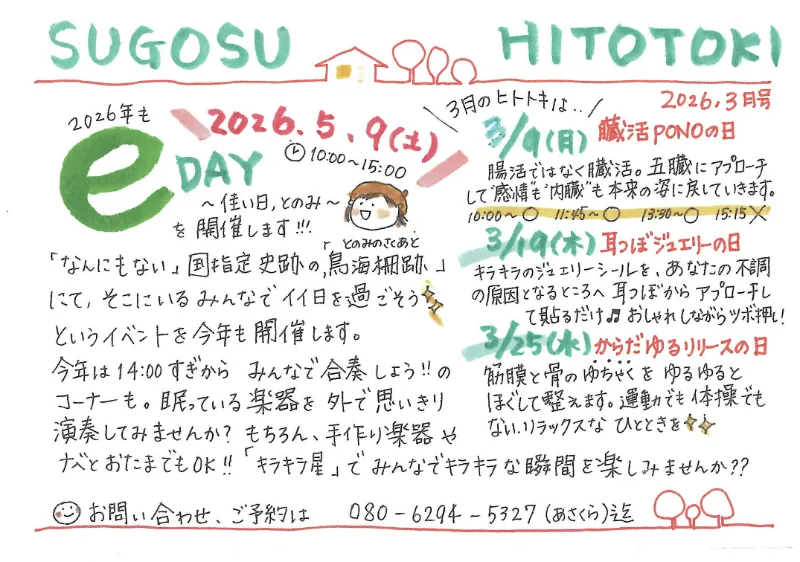 SUGOSU HITOTOKI
2026年も
2026.5.9(土)
e DAY
10:00〜15:00
〜佳い日,とのみ〜
を開催します!!!
とのみのさくあと
「なんにもない」国指定史跡の「鳥海柵跡」
にて,そこにいるみんなでイイ日を過ごそう
というイベントを今年も開催します。
今年は14:00すぎから みんなで合奏しよう!!の
コーナーも。眠っている楽器を外で思いきり
演奏してみませんか?もちろん、手作り楽器や
ナベとおたまでもOK!!「キラキラ星」でみんなでキラキラな瞬間を楽しみませんか??
2026.3月号
\3月のヒトトキは../
3/9(月) 臓活PONOの日
腸活ではなく臓活。五臓にアプローチ
して“感情”も“内臓”も本来の姿に戻していきます。
10:00〜○ 11:45〜○ 13:30〜○ 15:15×
3/19(木) 耳つぼジュエリーの日
キラキラのジュエリーシールを、あなたの不調
の原因となるところへ耳つぼからアプローチし
て貼るだけ♬おしゃれしながらツボ押し!
3/25(水) からだゆるリリースの日
筋膜と骨のゆちゃくをゆるゆると
ほぐして整えます。運動でも体操でも
ない.リラックスなひとときを
お問い合わせ、ご予約は 080-6294-5327(あさくら)迄